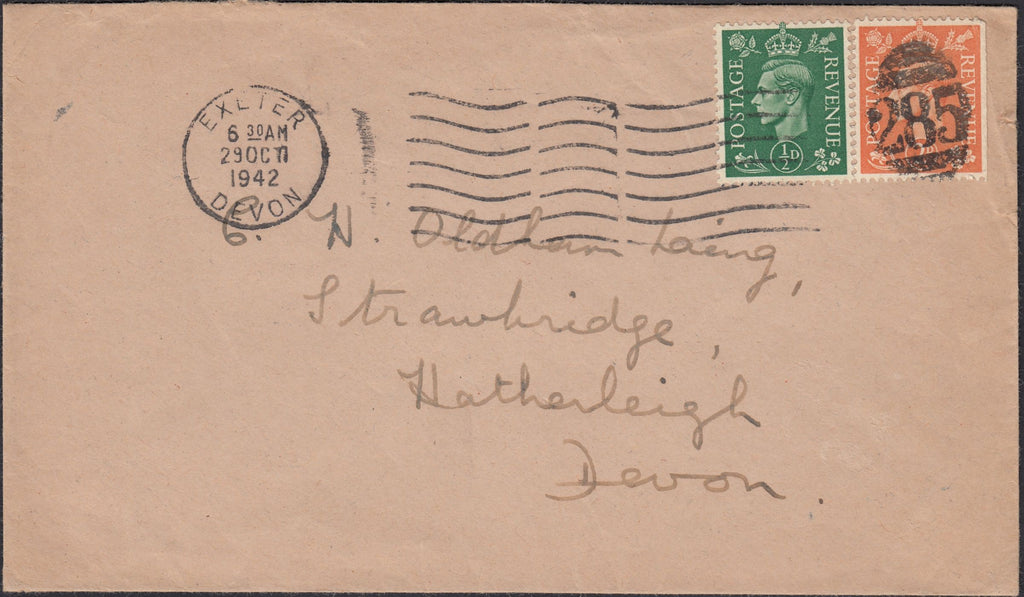 EXETER
6 30AM
29 OCT
1942
DEVON
POSTAGE REVENUE
½D
POSTAGE REVENUE
285
N. Oldham Laing,
Strawbridge,
Hatherleigh
Devon.